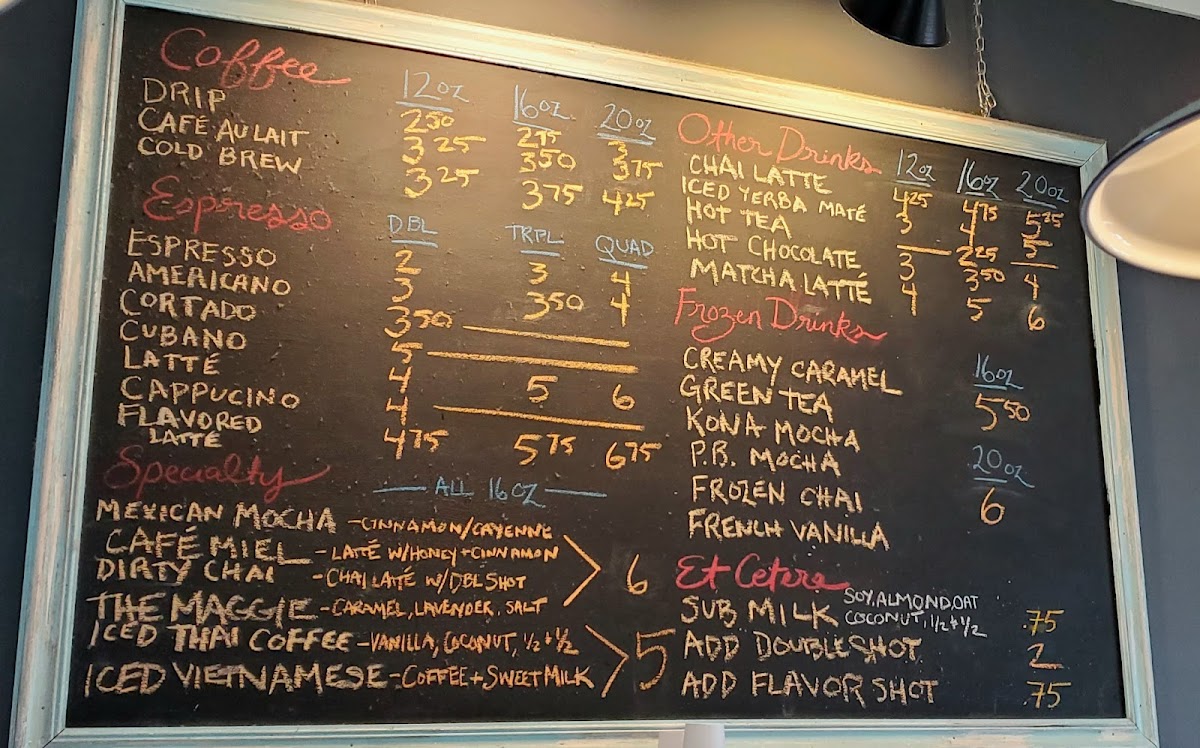 Coffee 12oz 16oz 20oz
DRIP 250 275 3
CAFÉ AU LAIT 325 350 375
COLD BREW 325 375 425
Espresso DBL TRPL QUAD
ESPRESSO 2 3 4
AMERICANO 3 350 4
CORTADO 350
CUBANO 5
LATTÉ 4 5 6
CAPPUCINO 4
FLAVORED
LATTÉ 475 575 675
Specialty ALL 16OZ
MEXICAN MOCHA - CINNAMON/CAYENNE
CAFÉ MIEL - LATTÉ W/HONEY + CINNAMON
DIRTY CHAI - CHAI LATTÉ W/DBL SHOT
6
THE MAGGIE - CARAMEL, LAVENDER, SALT
ICED THAI COFFEE - VANILLA, COCONUT, 1/2 + 1/2
ICED VIETNAMESE - COFFEE + SWEET MILK
5
Other Drinks 12oz 16oz 20oz
CHAI LATTE 425 475 525
ICED YERBA MATÉ 3 4 5
HOT TEA 225
HOT CHOCOLATE 3 350 4
MATCHA LATTÉ 4 5 6
Frozen Drinks
CREAMY CARAMEL 16oz
GREEN TEA 550
KONA MOCHA
P.B. MOCHA 20oz
FROZEN CHAI 6
FRENCH VANILLA
Et Cetera
SUB MILK SOY, ALMOND, OAT
COCONUT, 1/2 + 1/2 .75
ADD DOUBLESHOT 2
ADD FLAVOR SHOT .75